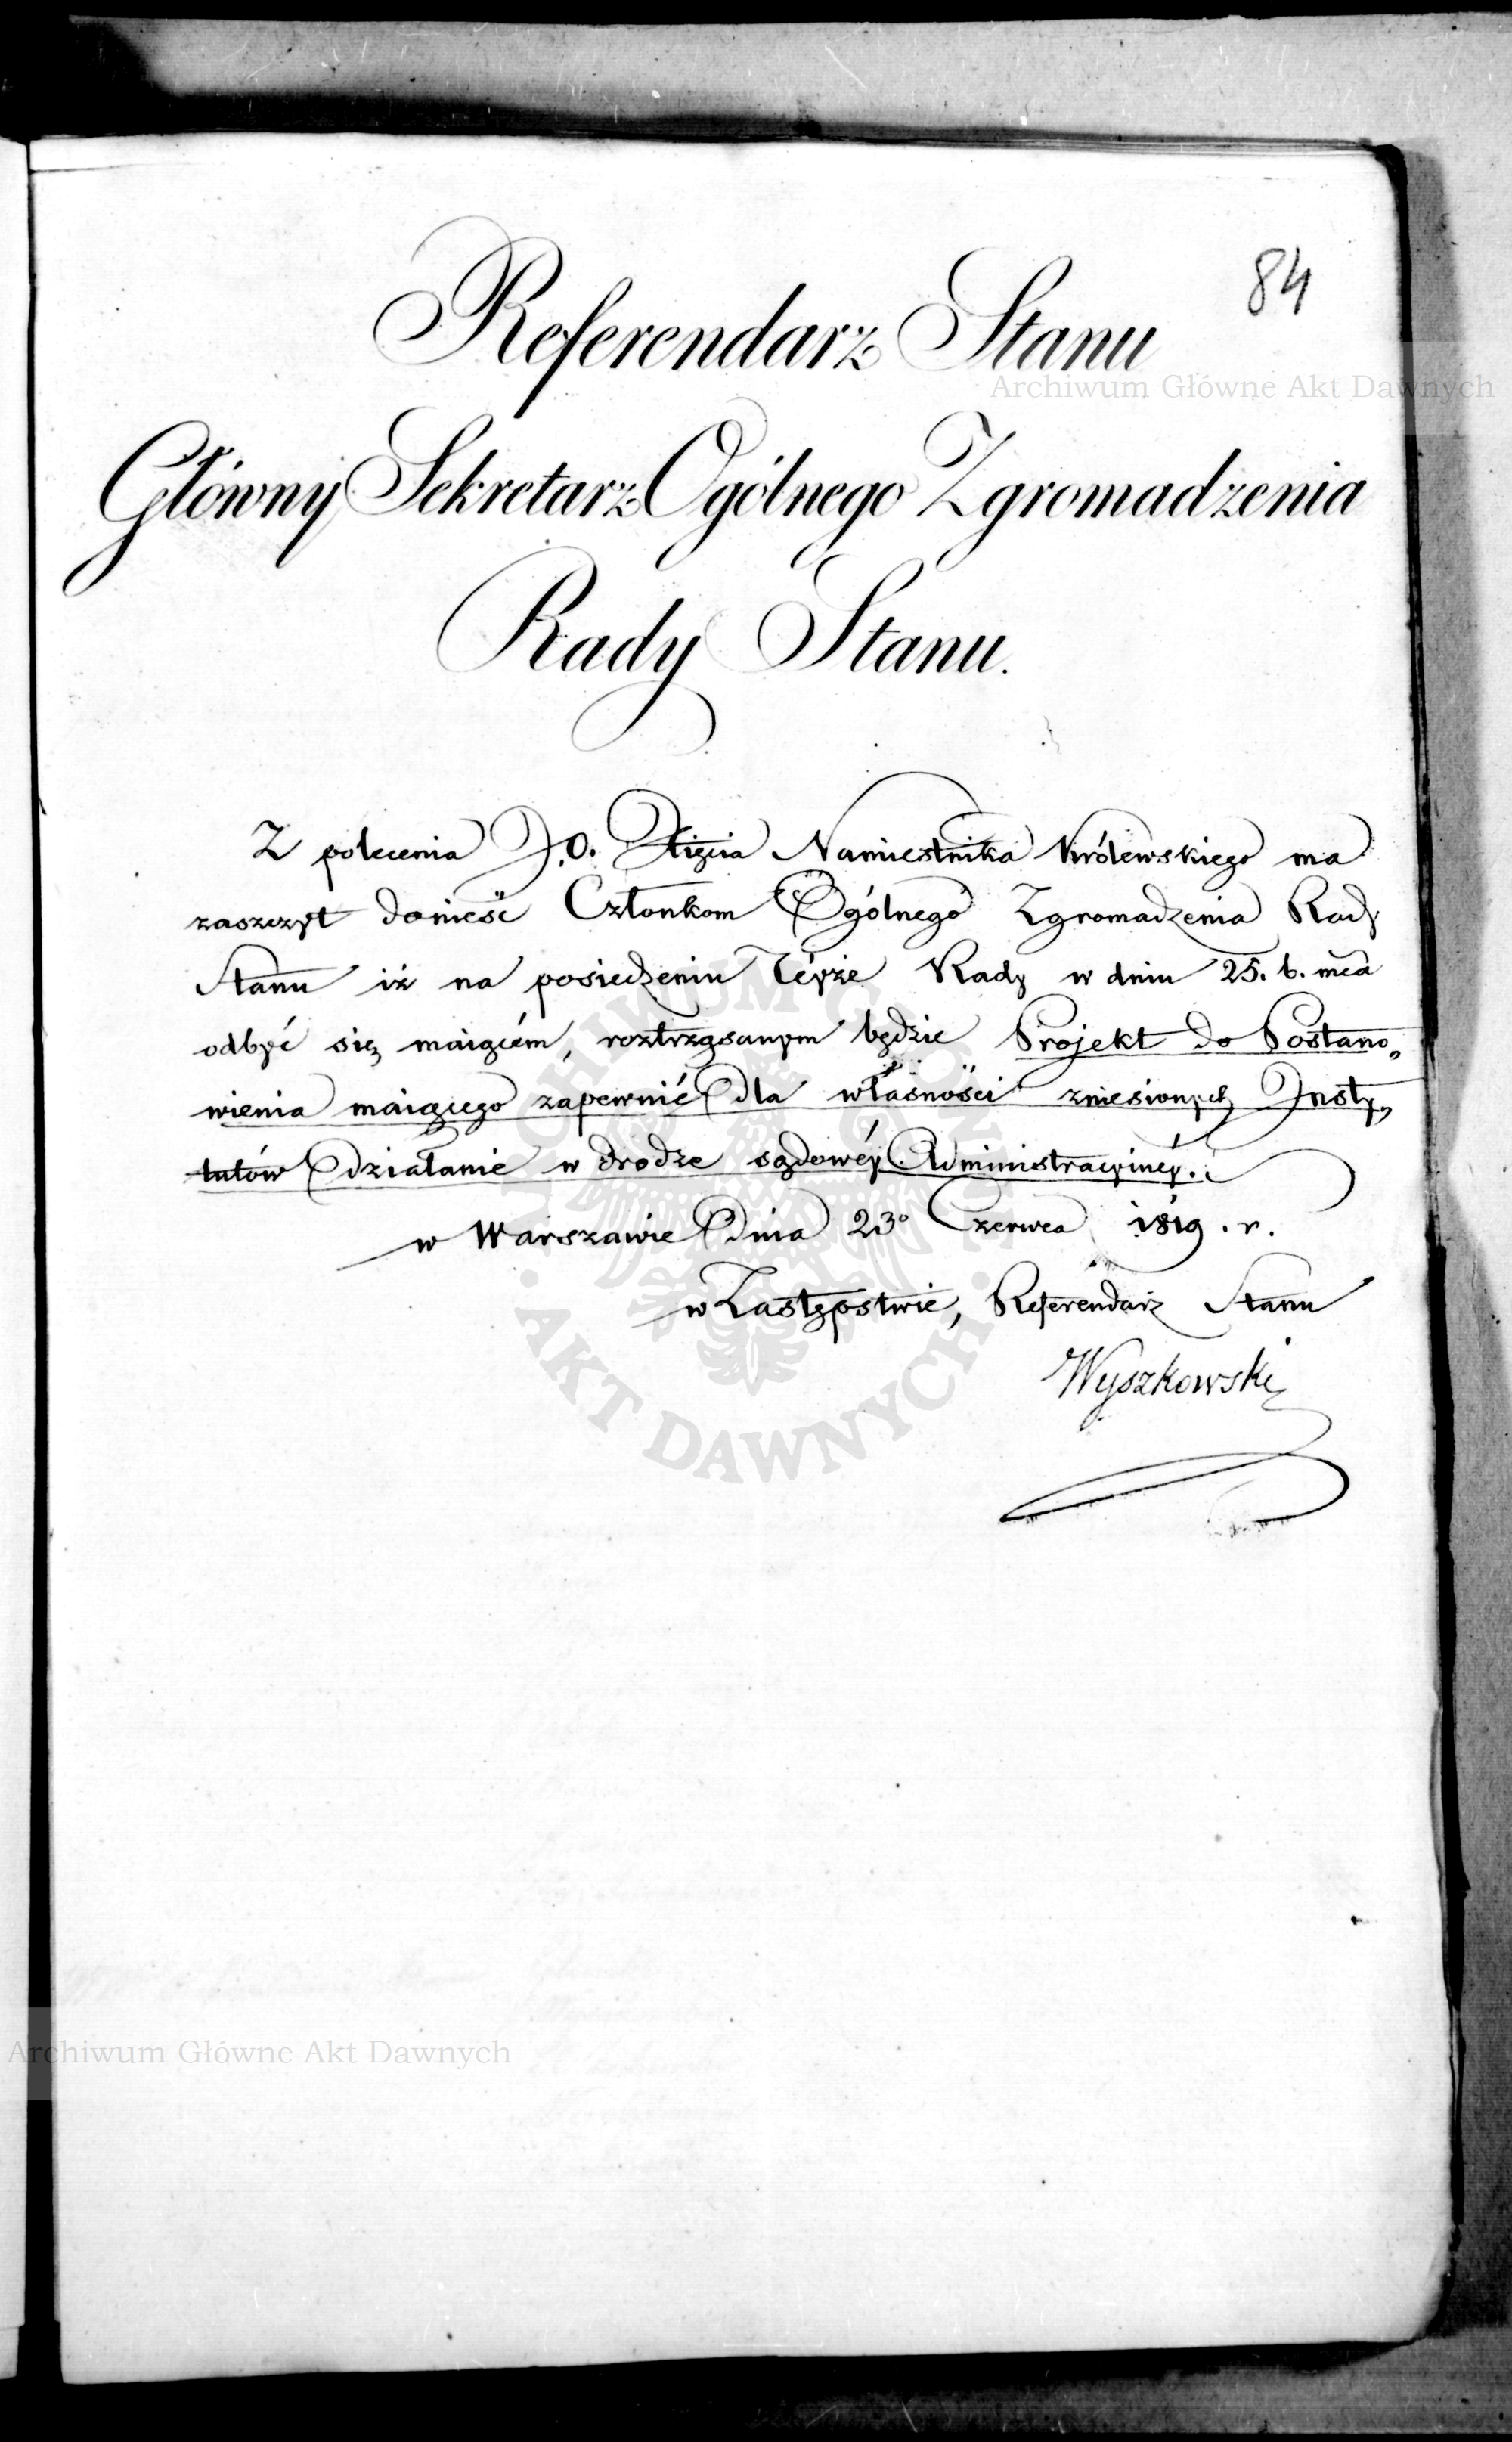 84
Referendarz Stanu
Archiwum Główne Akt Dawnych
Główny Sekretarz Ogólnego Zgromadzenia
Rady Stanu.
Z polecenia J.O. Xięcia Namiestnika Królewskiego ma
zaszczyt donieść Członkom Ogólnego Zgromadzenia Rady
Stanu iż na posiedzeniu Teyże Rady w dniu 25. b. mca
odbyć się maiącém, roztrząsanym będzie Projekt do Postano„
wienia maiącego zapewnić dla własności zniesionych Insty„
tutów działanie w drodze sądowéy Administracyinéy.
w Warszawie Dnia 23º Czerwca 1819. r.
w Zastępstwie, Referendarz Stanu
Wyszkowski
ARCHIWUM GŁÓWNE · AKT DAWNYCH ·
Archiwum Główne Akt Dawnych